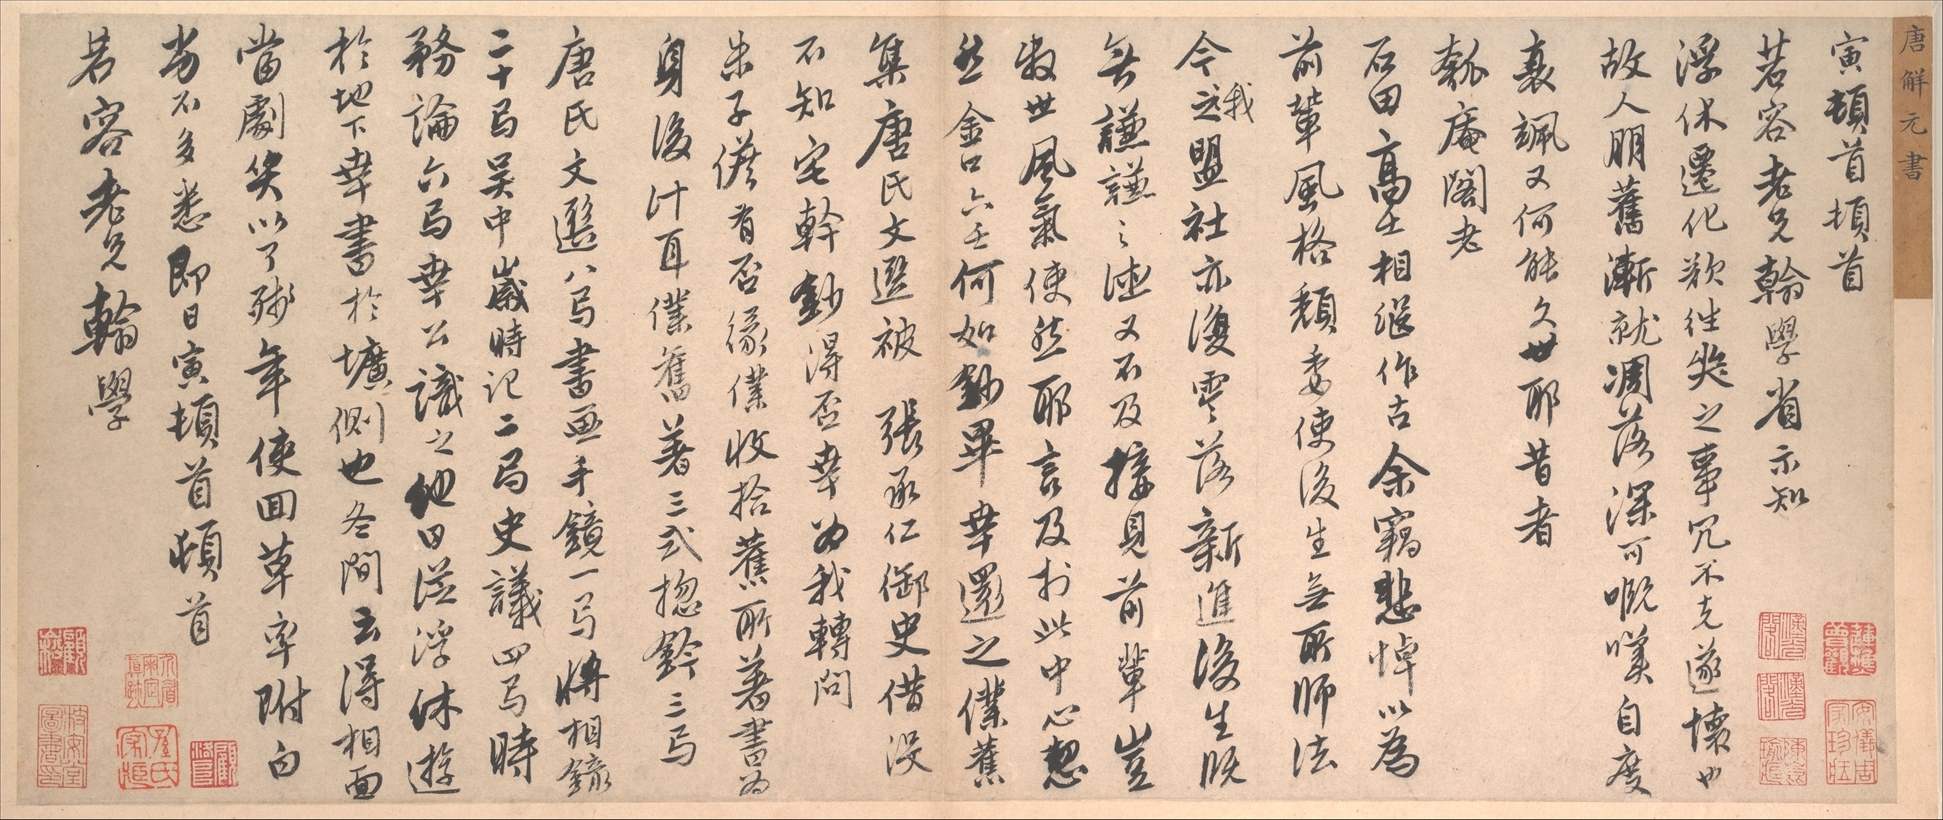 唐解元書
寅頓首頓首
若容老兄翰學省示知
浮休遷化欲往奠之事冗不克遂懷也
故人朋舊漸就凋落深可嘅嘆自度
衰颯又何能久世耶昔者
瓠庵閣老
石田高士相繼作古余竊悲悼以為
前輩風格頹委使後生無所師法
今我盟社亦復零落新進後生既
無謙謙之德又不及接見前輩豈
世風氣使然耶言及於此中心愁
然金口六壬何如鈔畢幸還之僕舊
集唐氏文選被 張承仁御史借沒
不知宅幹鈔得否幸為我轉問
朱子儋有否緣僕收拾舊所著書為
身後計耳僕舊著三式揔鈐三弓
唐氏文選八弓書畫手鏡一弓將相錄
二十弓吳中歲時記二弓史議四弓時
務論六弓幸公識之他日從浮休遊
於地下幸書於壙側也冬間去得相面
當劇笑以了殘年使回草率附白
不多悉即日寅頓首頓首
若容老兄翰學
安儀周家珍藏